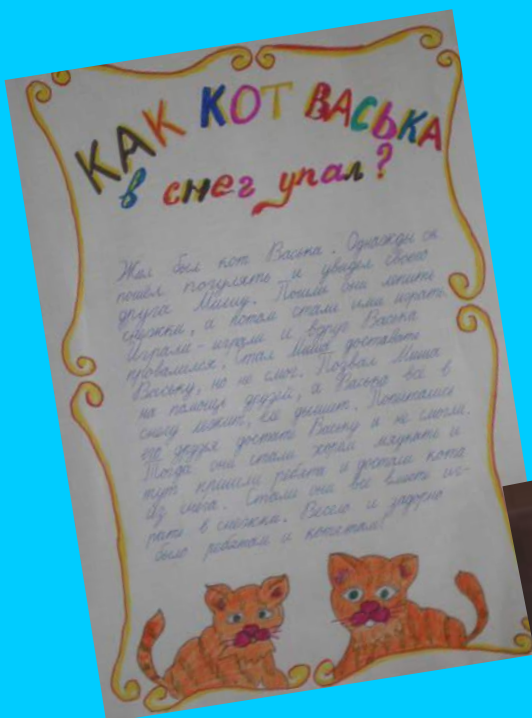 КАК КОТ ВАСЬКА
в снег упал?
Жил был кот Васька. Однажды он
пошёл погулять и увидел своего
друга Мишу. Пошли они лепить
снежки, а потом стали ими играть.
Играли-играли и вдруг Васька
провалился. Стал Миша доставать
Ваську, но не смог. Позвал Миша
на помощь друзей, а Васька всё в
снегу лежит, еле дышит. Попытались
его друзья достать Ваську и не смогли.
Тогда они стали хором мяукать и
тут пришли ребята и достали кота
из снега. Стали они все вместе иг-
рать в снежки. Весело и задорно
было ребятам и котятам!